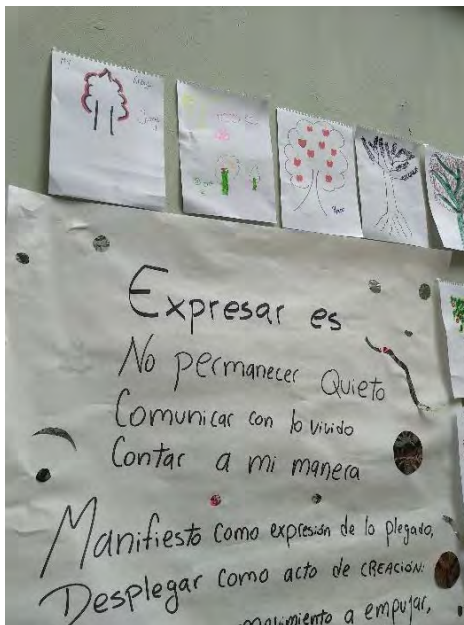 Expresar es
No permanecer Quieto
Comunicar con lo vivido
Contar a mi manera
Manifiesto como expresión de lo plegado,
Desplegar como acto de CREACIÓN:
a empujar,